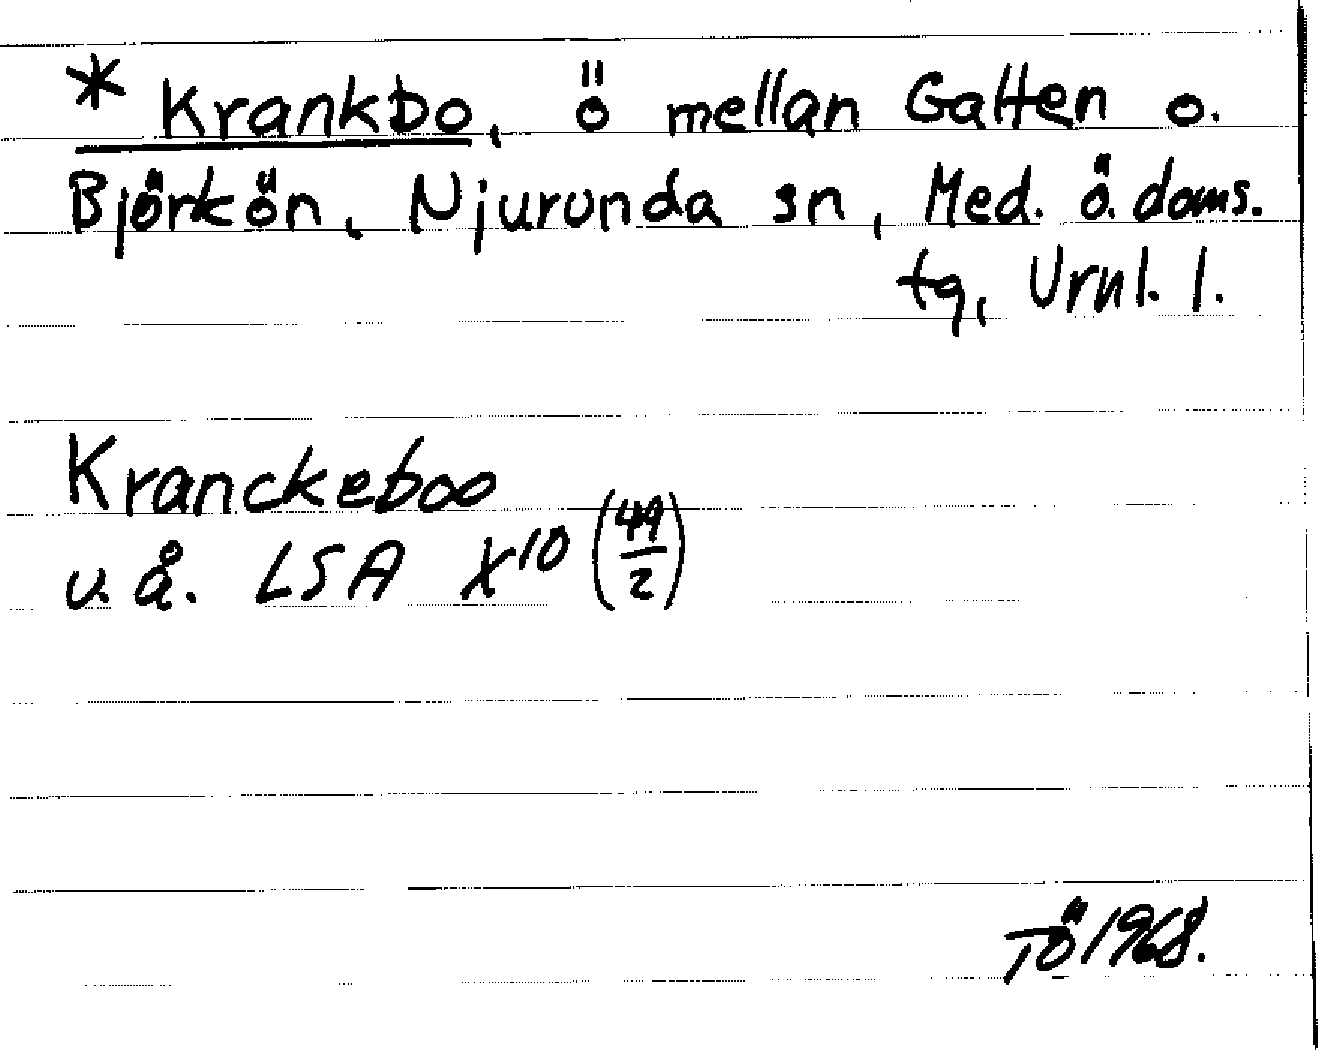 * Krankbo, ö mellan Galten o.
Björkön, Njurunda sn, Med. ö. doms.
tg, Vrnl. l.
Kranckeboo
u. å. LSA X10 (49/2)
TÖ 1968.